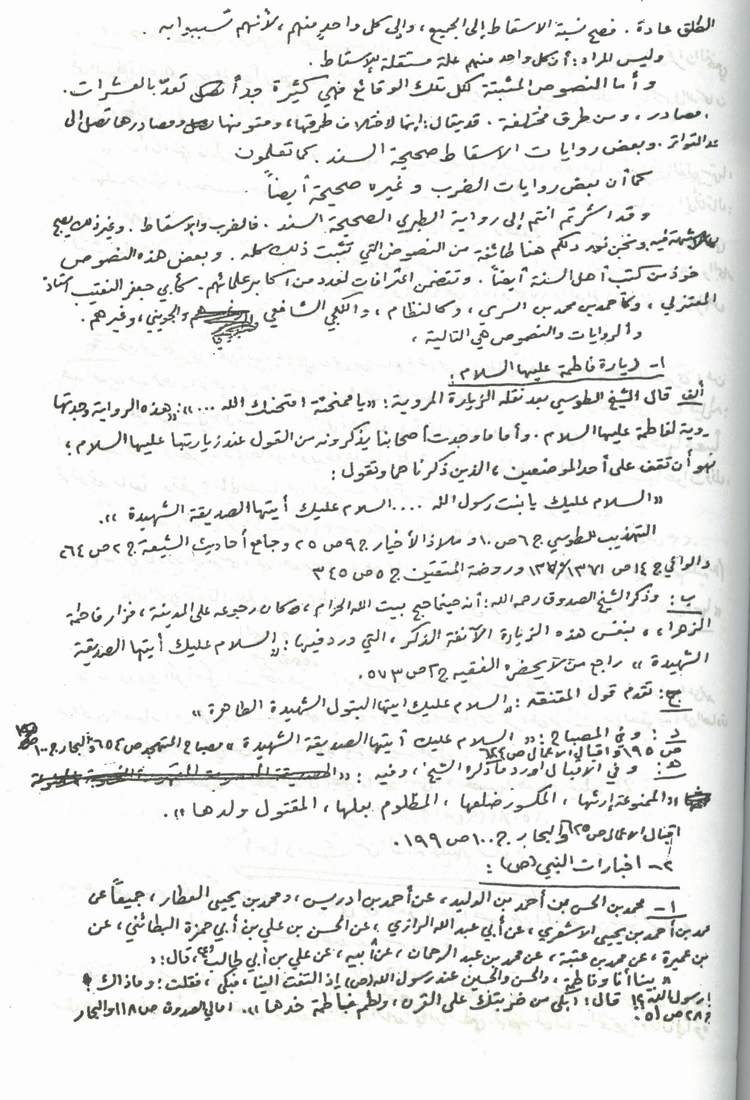 الطلق عادة. فصح نسبة الاسقاط إلى الجميع، وإلى كل واحد منهم، لأنهم تسببوا به.
وليس المراد: أن كل واحد منهم علة مستقلة للإسقاط.
وأما النصوص المثبتة لكل تلك الوقائع فهي كثيرة جداً تعدّ بالعشرات.
مصادر، ومن طرق مختلفة. قد يقال: إنها لاختلاف طرقها، ومتونها ومصادرها تصل إلى
حد التواتر. وبعض روايات الاسقاط صحيحة السند. كما تعلمون
كما أن بعض روايات الضرب وغيره صحيحة أيضاً.
وقد اشرتم انتم إلى رواية الطبري الصحيحة السند. فالضرب والاسقاط. وغير ذلك يصبح
مما لا شبهة فيه ونحن نورد لكم هنا طائفة من النصوص التي تثبت ذلك كله. وبعض هذه النصوص
خوذ من كتب أهل السنة أيضاً. وتتضمن اعترافات لعدد من اكابر علمائهم. كأبي جعفر النقيب استاذ
المعتزلي، وكأحمد بن محمد بن السري، وكالنظام، والكنجي الشافعي والجويني، وغيرهم.
والروايات والنصوص هي التالية،
١- زيارة فاطمة عليها السلام:
ألف قال الشيخ الطوسي بعد نقله الزيارة المروية: «يا ممتحنة امتحنك الله ...»: «هذه الرواية وجدتها
روية لفاطمة عليها السلام. وأما ما وجدت أصحابنا يذكرونه من القول عند زيارتها عليها السلام؛
فهو أن تقف على أحد الموضعين، الذين ذكرناهما وتقول:
«السلام عليك يا بنت رسول الله .... السلام عليك أيتها الصديقة الشهيدة».
التهذيب للطوسي ج ٦ ص ١٠ وملاذ الأخيار ج ٩ ص ٢٥ وجامع أحاديث الشيعة ج ٢ ص ٢٦٤
والوافي ج ١٤ ص ١٣٧١ وروضة المتقين ج ٥ ص ٣٤٥
ب: وذكر الشيخ الصدوق رحمه الله: أنه حينما حج بيت الله الحرام، كان رجوعه على المدينة، فزار فاطمة
الزهراء، بنفس هذه الزيارة الآنفة الذكر، التي ورد فيها: «السلام عليك أيتها الصديقة
الشهيدة» راجع من لا يحضره الفقيه ج ٢ ص ٥٧٣.
ج: تقدم قول المقنعة: «السلام عليك ايتها البتول الشهيدة الطاهرة»
د: وفي المصباح: «السلام عليك أيتها الصديقة الشهيدة» مصباح المتهجد ص ٦٥٤ والبحار ج ١٠٠
ص ١٩٥ واقبال الاعمال ص ٦٢٤
هـ: وفي الاقبال أورد ما ذكره الشيخ، وفيه:
«الممنوعة إرثها، المكسور ضلعها، المظلوم بعلها، المقتول ولدها».
اقبال الاعمال ص ٦٢٥ والبحار ج ١٠٠ ص ١٩٩.
٢- اخبارات النبي (ص):
١- محمد بن الحسن بن أحمد بن الوليد، عن أحمد بن ادريس، ومحمد بن يحيى العطار، جميعاً عن
محمد بن أحمد بن يحيى الاشعري، عن أبي عبد الله الرازي، عن الحسن بن علي بن أبي حمزة البطائني، عن
بن عميرة، عن محمد بن عتبة، عن محمد بن عبد الرحمان، عن أبيه، عن علي بن أبي طالب، قال:
«بينا أنا وفاطمة، والحسن والحسين عند رسول الله (ص) إذ التفت الينا، فبكى، فقلت: وما ذاك
رسول الله؟! قال: أبكي من ضربتك على القرن، ولطم فاطمة خدها». امالي الصدوق ص ١١٨ والبحار
ج ٢٨ ص ٥١.